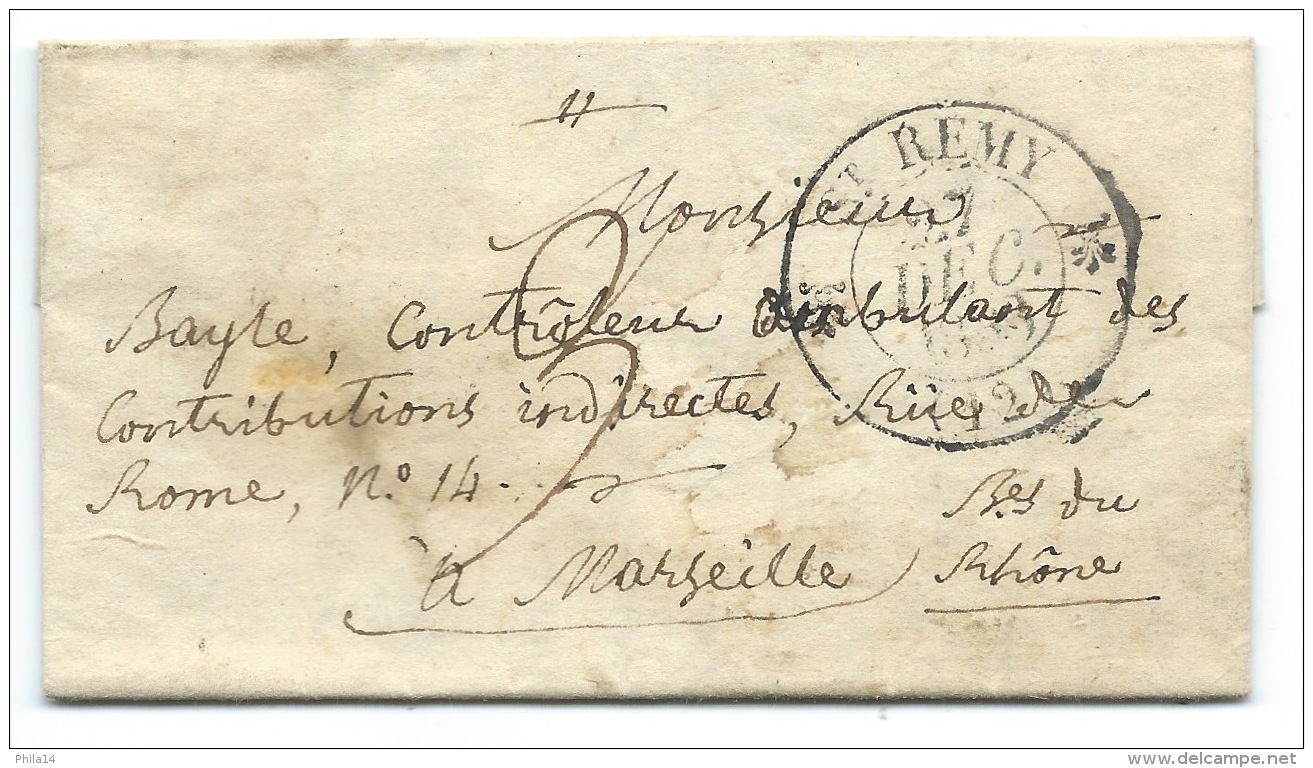 Monsieur
Bayle, Contrôleur ambulant des
Contributions indirectes, Rüe de
Rome, N.º 14.
à Marseille
B.es du
Rhône
ST REMY
27
DEC.
(12)
Phila14
www.delcampe.net